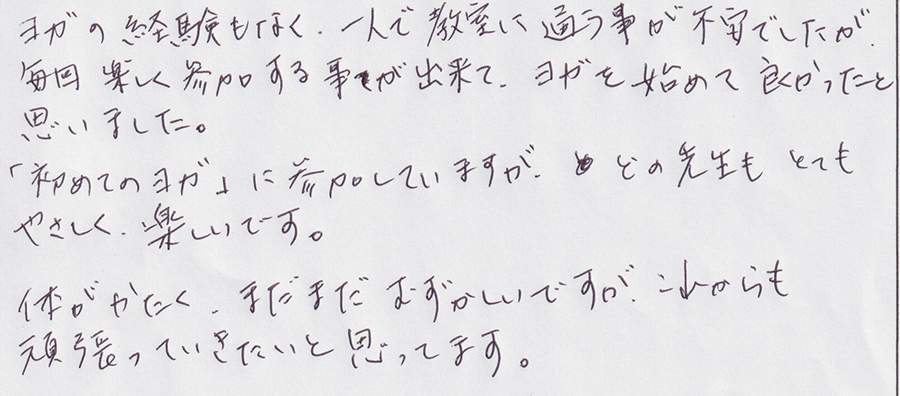 ヨガの経験もなく、一人で教室に通う事が不安でしたが、
毎回楽しく参加する事が出来て、ヨガを始めて良かったと
思いました。
「初めてのヨガ」に参加していますが、どの先生もとても
やさしく、楽しいです。
体がかたく、まだまだむずかしいですが、これからも
頑張っていきたいと思ってます。